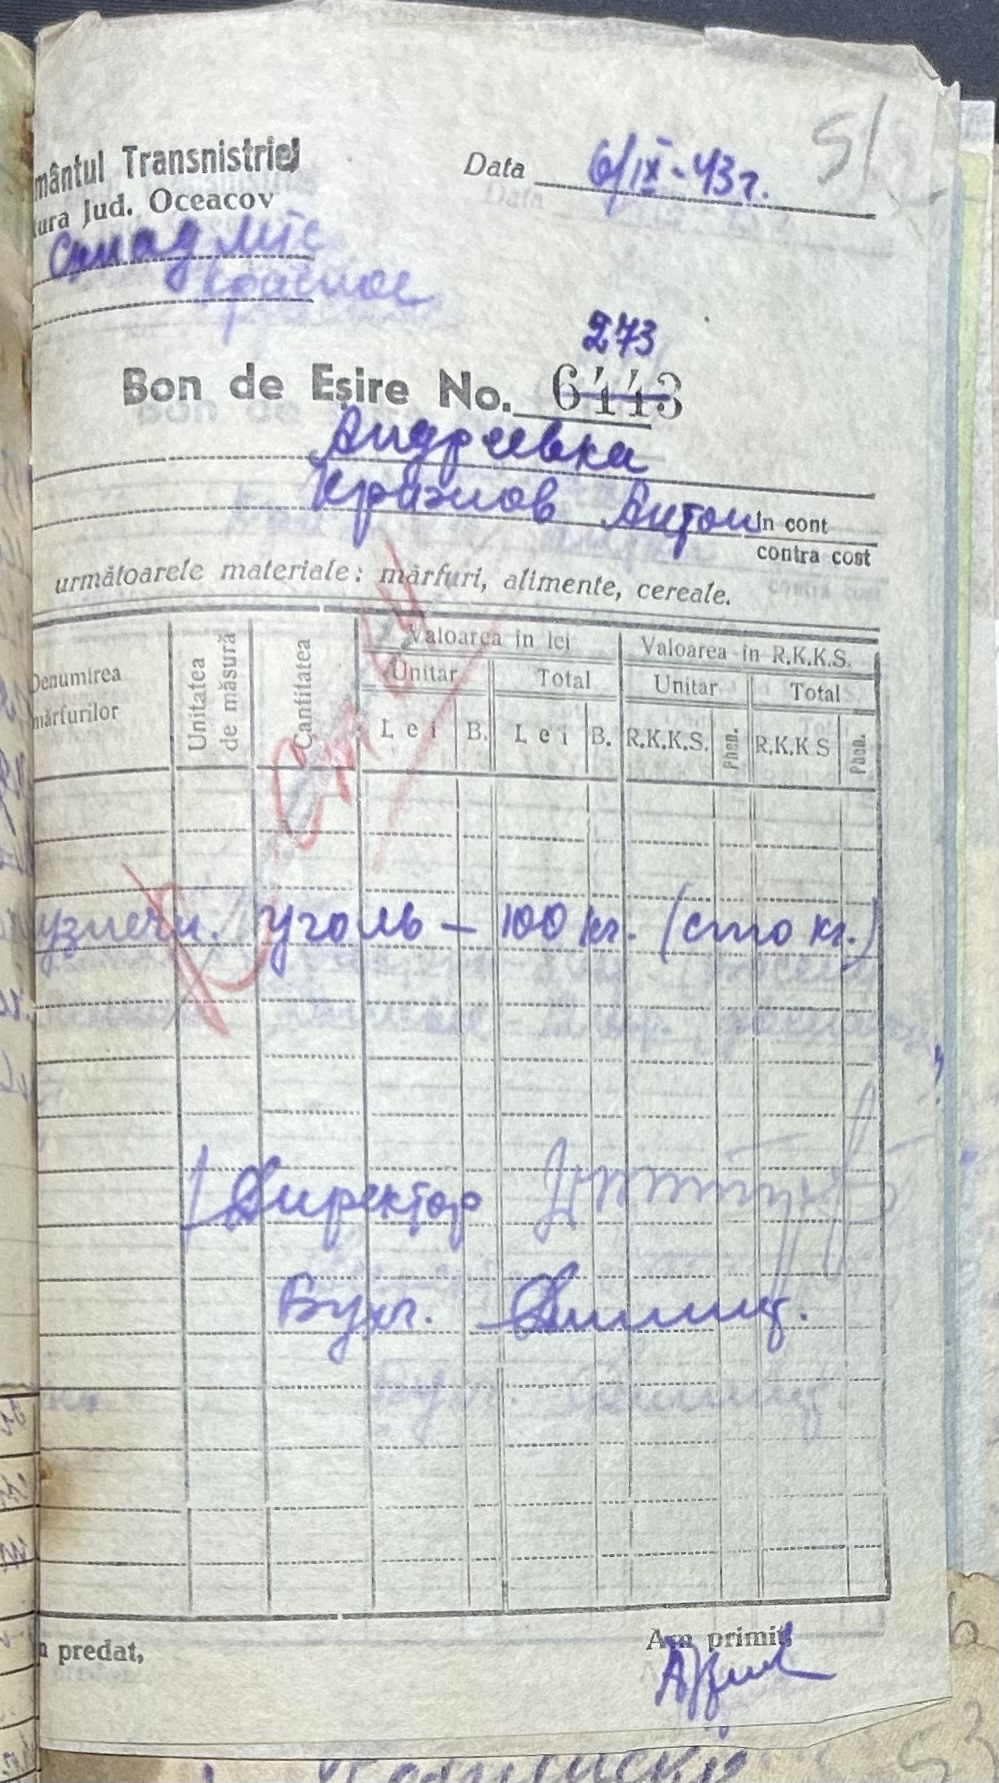 51
mântul Transnistriei
Data 6/IX-43г.
ura Jud. Oceacov
Склад МТС
Красное
273
Bon de Eșire No. 6443
Андреевка
Антон in cont
contra cost
următoarele materiale: mărfuri, alimente, cereale.
Denumirea mărfurilor
Unitatea de măsură
Cantitatea
Valoarea în lei
Valoarea în R.K.K.S.
Unitar
Total
Unitar
Total
Lei
B.
Lei
B.
R.K.K.S.
Phen.
R.K.K S
Phen.
узнечн. уголь — 100 кг. (сто кг.)
Директор
Бухг.
predat,
Am primit,